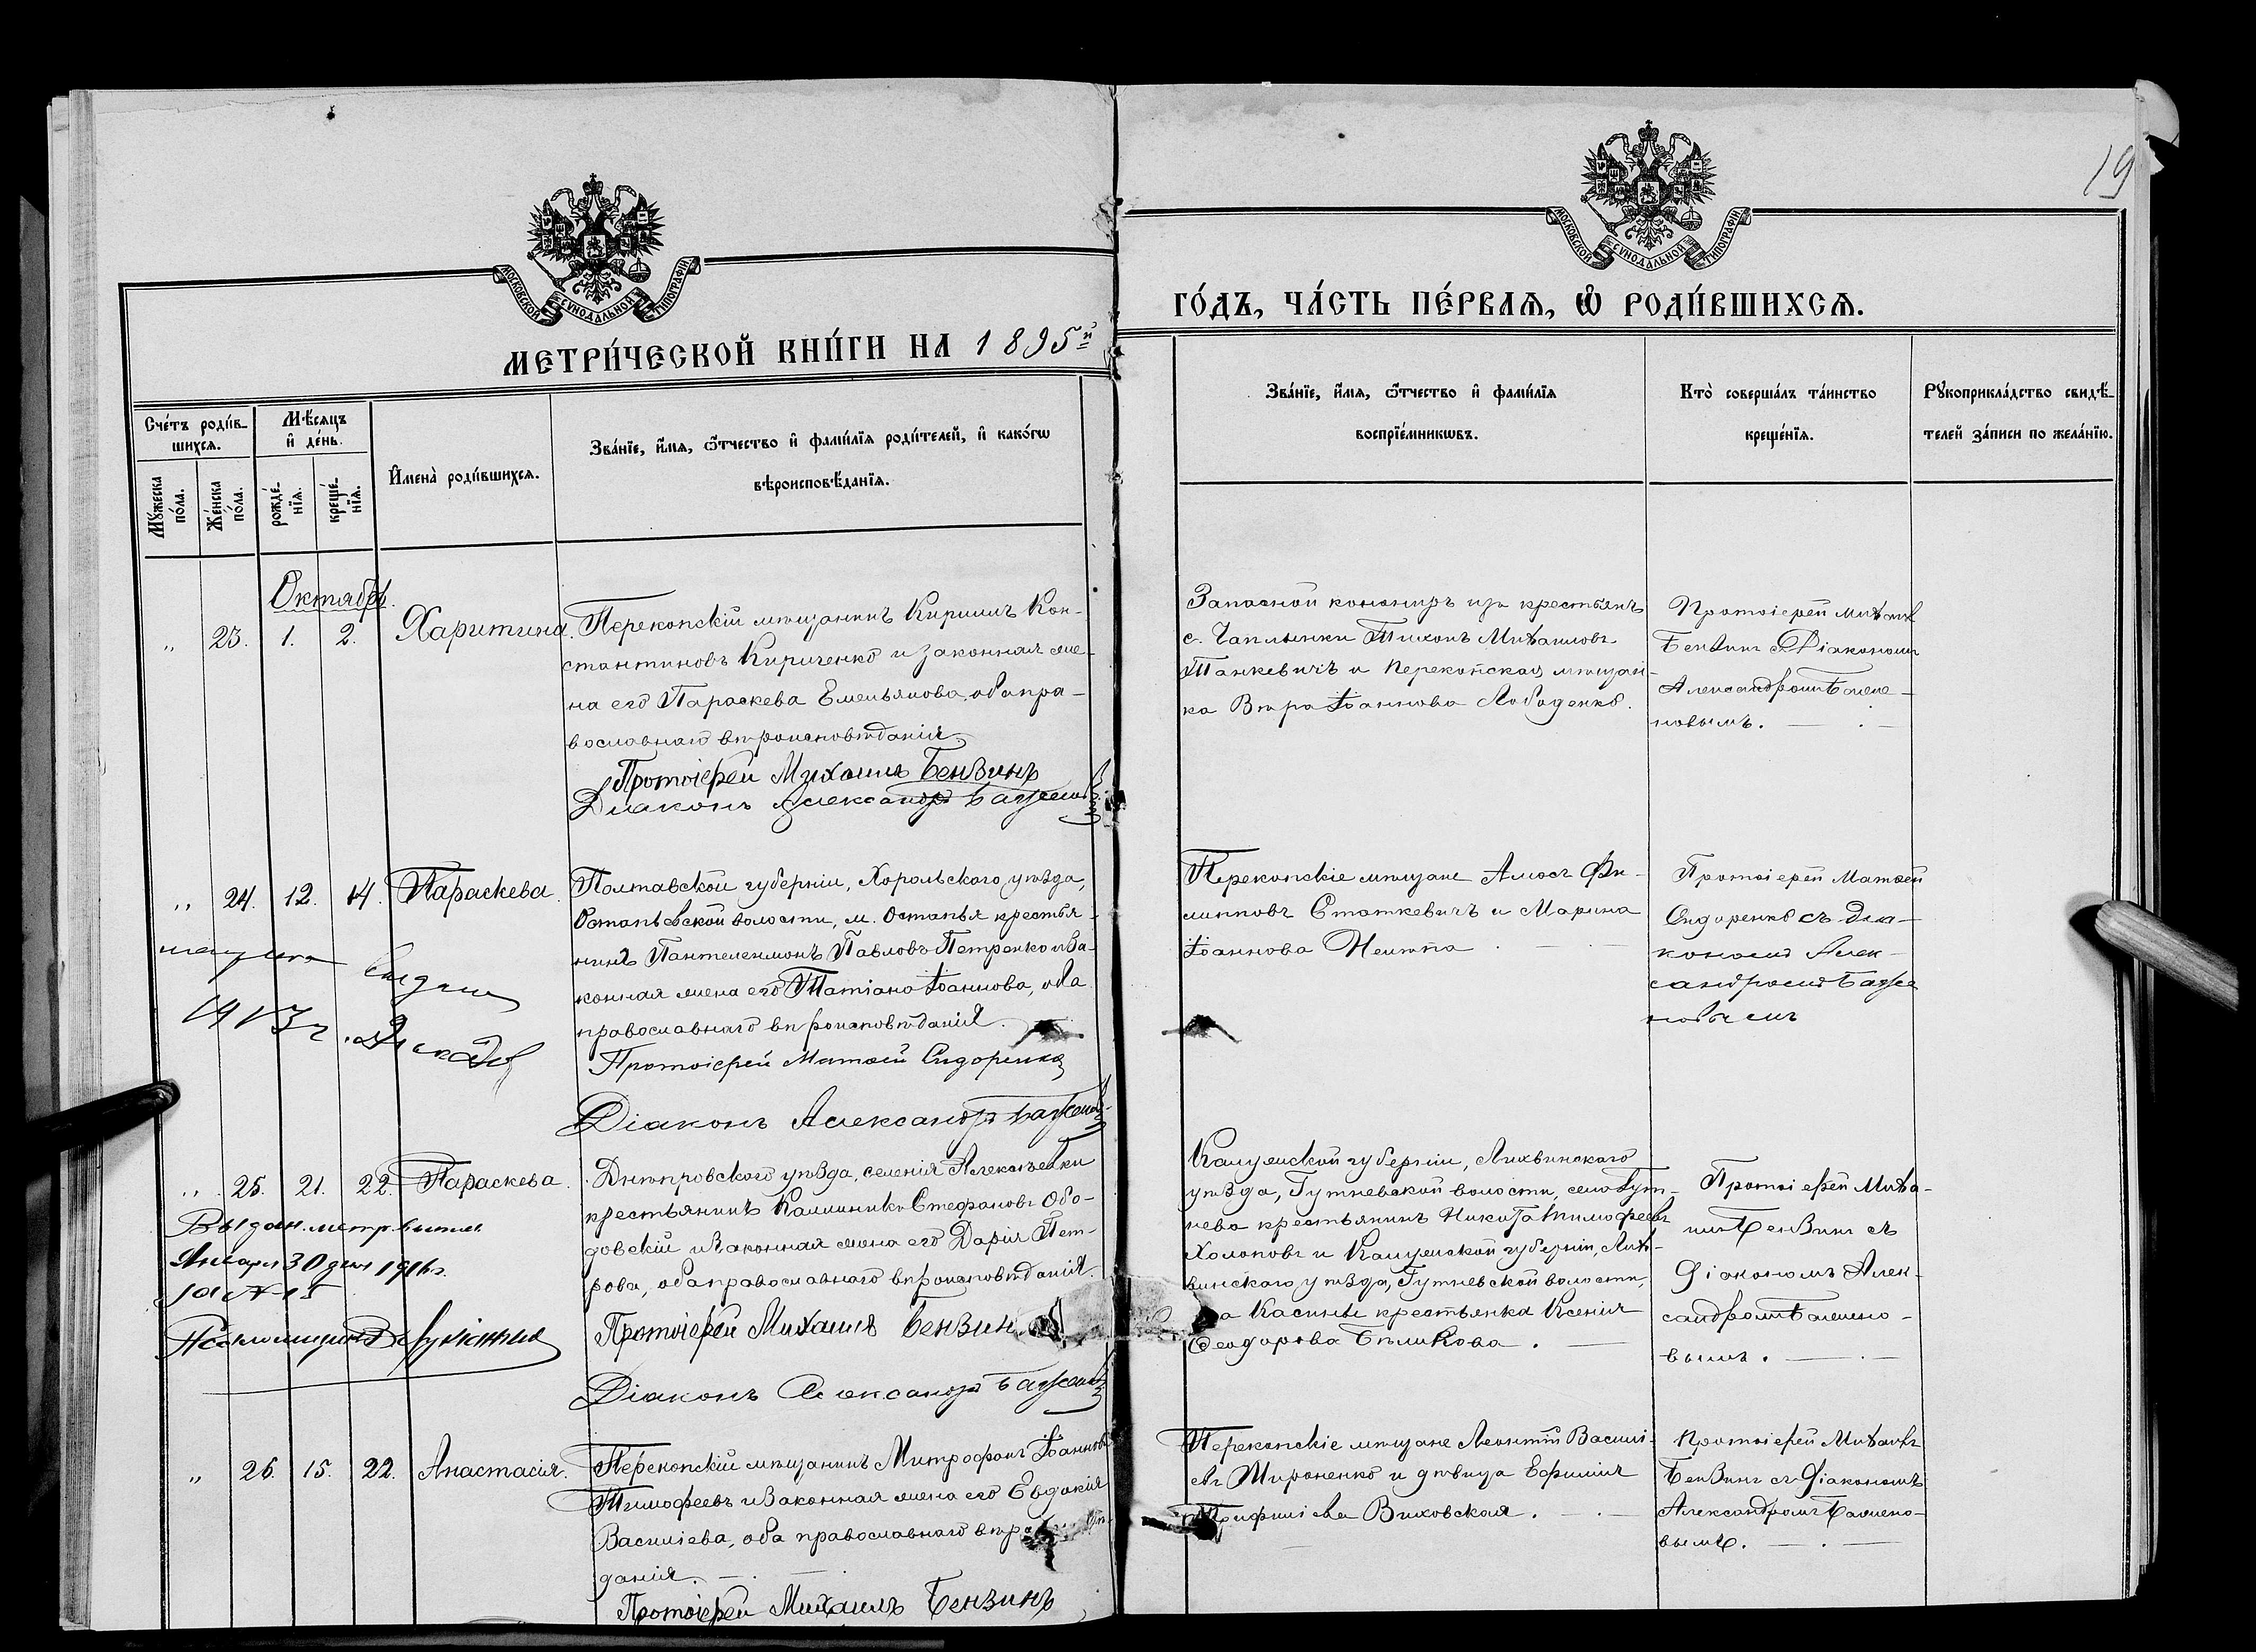 19
МОСКОВСКОЙ СѴНОДАЛЬНОЙ ТИПОГРАФІИ
МОСКОВСКОЙ СѴНОДАЛЬНОЙ ТИПОГРАФІИ
МЕТРИ́ЧЕСКОЙ КНИ́ГИ НА 1895й
ГО́ДЪ, ЧА́СТЬ ПЕ́РВАѦ, Ѡ҆ РОДИ́ВШИХСѦ.
Сче́тъ роди́в-
шихсѧ.
Мѣ́сяцъ
и҆ де́нь.
Мꙋ́жеска
по́ла.
Же́нска
по́ла.
рожде́-
нїѧ.
креще́-
нїѧ.
И҆мена̀ роди́вшихсѧ.
Зва́нїе, и҆́мѧ, ѻ҆́тчество и҆ фами́лїѧ роди́телей, и҆ како́гѡ
вѣроисповѣ́данїѧ.
Зва́нїе, и҆́мѧ, ѻ҆́тчество и҆ фами́лїѧ
воспрїе́мникѡвъ.
Кто̀ соверша́лъ та́инство
креще́нїѧ.
Рꙋкоприкла́дство свидѣ́-
телей за́писи по жела́нїю.
Октябрь.
„ 23. 1. 2. Харитина.
Перекопскій мѣщанинъ Кириллъ Кон-
стантиновъ Кириченко и законная же-
на его Параскева Емельянова, оба пра-
вославнаго вѣроисповѣданія.
Протоіерей Михаилъ Бензинъ
Діаконъ Александръ Баженовъ
Запасной из крестьянъ
с. Чаплынки Тихонъ Михаиловъ
Танкевичъ и Перекопская мѣщан-
ка Вѣра Іоаннова Лободенко.
Протоіерей Михаилъ
Бензинъ с Діакономъ
Александромъ Баже-
новымъ.
„ 24. 12. 14. Параскева.
Полтавской губерніи, Хорольскаго уѣзда,
Остапьевской волости, м. Остапья крестья-
нинъ Пантелеимонъ Павловъ Петренко и за-
конная жена его Татіана Іоаннова, оба
православнаго вѣроисповѣданія.
Протоіерей Матѳей Сидоренко
Діаконъ Александръ Баженовъ
Перекопскіе мѣщане Амосъ Фи-
липповъ Статкевичъ и Марина
Іоаннова
Протоіерей Матѳей
Сидоренко съ Діа-
кономъ Алек-
сандромъ Баже
новымъ
1913 г.
„ 25. 21. 22. Параскева.
Днѣпровскаго уѣзда, селенія Алексѣевки
крестьянинъ Каллиникъ Стефановъ Обо-
довскій и законная жена его Дарія Пет-
рова, оба православнаго вѣроисповѣданія.
Протоіерей Михаилъ Бензинъ
Діаконъ Александръ Баженовъ
Калужской губерніи, Лихвинскаго
уѣзда, Гутневской волости, село Гут-
нева крестьянинъ Никита Тимофеевъ
Холоповъ и Калужской губерніи, Лих-
винскаго уѣзда, Гутневской волости,
крестьянка Ксенія
Ѳеодорова Бѣликова.
Протоіерей Миха-
илъ Бензинъ съ
Діакономъ Алек-
сандромъ Бажено-
вымъ.
Выдан. метр. выпись
Января 30 дня 1916 г.
за № 15
Псаломщикъ
„ 26. 15. 22. Анастасія.
Перекопскій мѣщанинъ Митрофанъ Іаннов
Тимофеевъ и законная жена его Евдокія
Василіева, оба православнаго
данія.
Протоіерей Михаилъ Бензинъ
Перекопскіе мѣщане Леонтій Василі-
евъ Мироненко и дѣвица Ефимія
Виховская.
Протоіерей Михаилъ
Бензинъ съ Діакономъ
Александромъ Бажено-
вымъ.